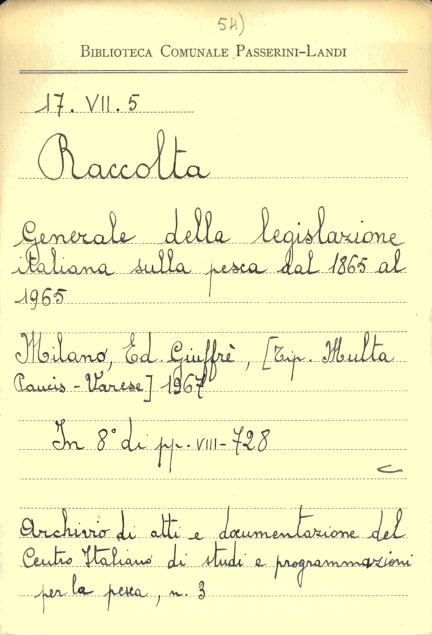 54)
BIBLIOTECA COMUNALE PASSERINI-LANDI
17. VII. 5
Raccolta
Generale della legislazione
italiana sulla pesca dal 1865 al
1965
Milano, Ed. Giuffrè, [Tip. Multa
Paucis - Varese] 1967
In 8° di pp. VIII-728
Archivio di atti e documentazione del
Centro Italiano di studi e programmazioni
per la pesca, n. 3